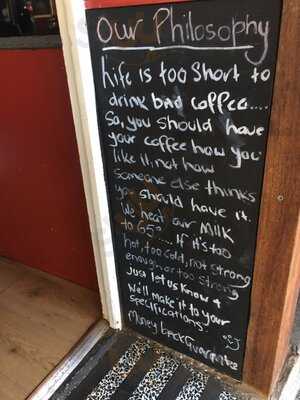 Our Philosophy
Life is too short to
drink bad coffee....
So, you should have
your coffee how you
like it, not how
someone else thinks
you should have it.
We heat our Milk
to 65°.... If it's too
hot, too cold, not strong
enough or too strong
Just let us know &
We'll make it to your
specifications
Money back Guarantee